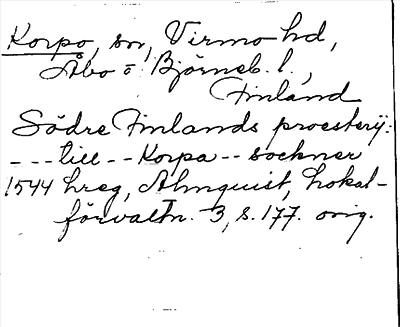 Korpo, sn, Virmo hd,
Åbo o. Björneb. l.,
Finland
Södre Finlands prosterij:
--- till -- Korpa -- sockner
1544 hreg, Almquist, Lokal-
förvaltn. 3, s. 177. orig.